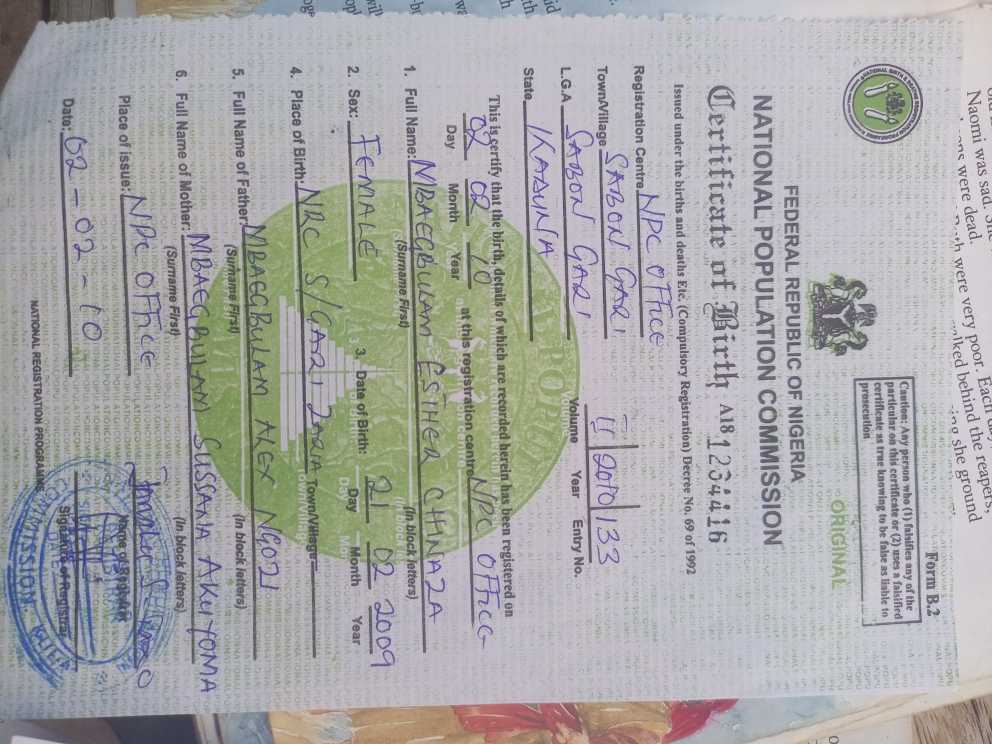 Form B.2
Caution: Any person who (1) falsifies any of the
particular on this certificate or (2) uses a falsified
certificate as true knowing to be false as liable to
prosecution
ORIGINAL
FEDERAL REPUBLIC OF NIGERIA
NATIONAL POPULATION COMMISSION
Certificate of Birth A18 1234416
Issued under the births and deaths Etc. (Compulsory Registration) Decree No. 69 of 1992
Registration Centre NPC OFFICE
Town/Village SABON GARI
L.G.A SABON GARI
State KADUNA
II 2010 133
Volume Year Entry No.
This is certify that the birth, details of which are recorded herein has been registered on
02 02 10 at this registration centre NPC OFFICE
Day Month Year
1. Full Name: MBAEGBULAM ESTHER CHINAZA
(Surname First) (In block letters)
2. Sex: FEMALE 3. Date of Birth: 21 02 2009
Day Month Year
4. Place of Birth: NRC S/GARI ZARIA Town/Village
5. Full Name of Father: MBAEGBULAM ALEX NGOZI
(Surname First) (In block letters)
6. Full Name of Mother: MBAEGBULAM SUSSANA AKUYOMA
(Surname First) (In block letters)
Place of issue: NPC OFFICE
Name of Registrar
Date: 02-02-10
Signature of Registrar
NATIONAL REGISTRATION PROGRAMME
Naomi was sad.
were dead.
were very poor. Each
behind the reapers,
she ground